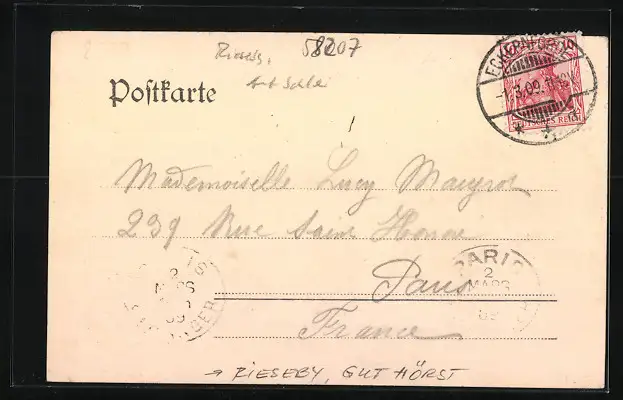 Rieseby, 58207
Gut Schle
Postkarte
ECKERNFÖRDE
-1.3.09.
DEUTSCHES REICH
Mademoiselle Lucy
239 Rue Saint Honoré
Paris
France
PARIS
2
MARS
09
2
MARS
09
→ RIESEBY, GUT HÖRST